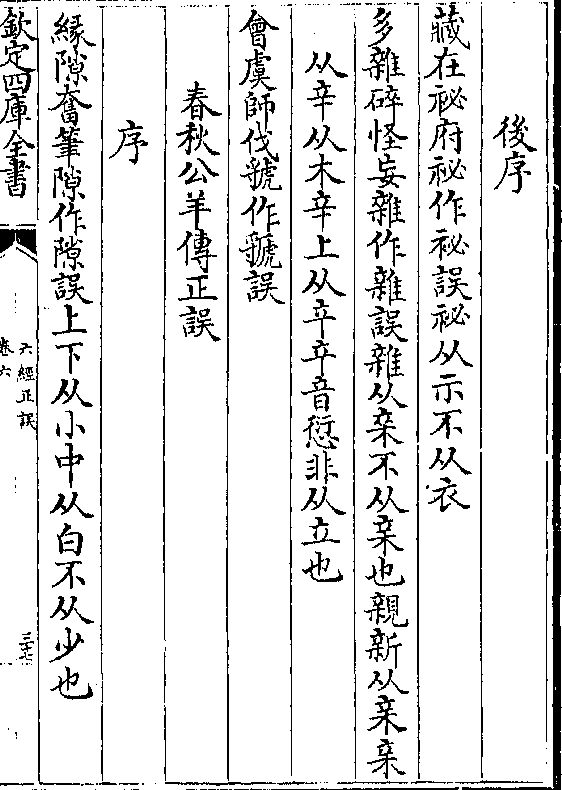 後序
藏在祕府祕作袐誤祕从示不从衣
多雜碎怪妄雜作雜誤雜从亲不从亲也親新从亲亲
从辛从木辛上从䇂䇂音愆非从立也
會虞師伐虢作虢誤
春秋公羊傳正誤
序
緣隙奮筆隙作隙誤上下从小中从白不从少也
欽定四庫全書
六經正誤
卷六
三十七